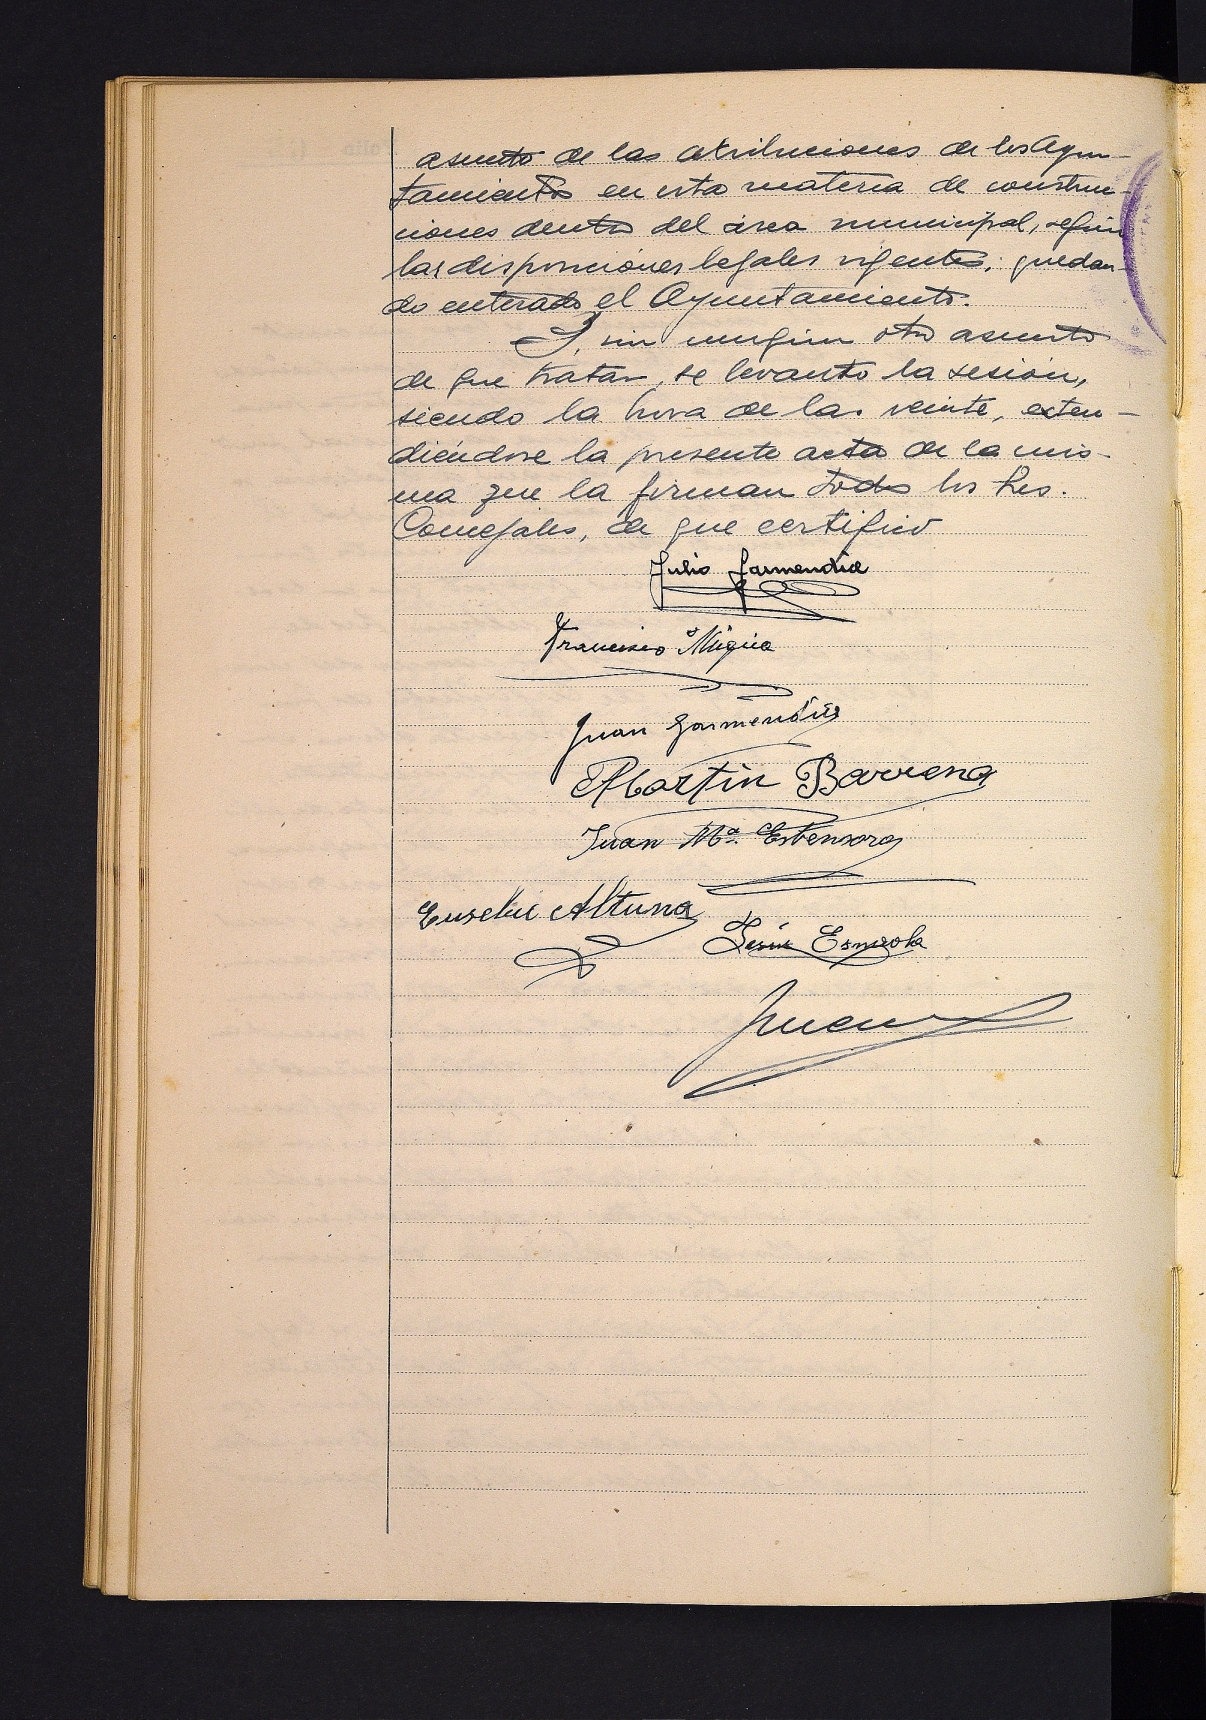 asunto de las atribuciones de los Ayun-
tamientos en esta materia de construc-
ciones dentro del área municipal, según
las disposiciones legales vigentes; quedan-
do enterado el Ayuntamiento.
Y, sin ningún otro asunto
de que tratar, se levanto la sesión,
siendo la hora de las veinte, exten-
diéndose la presente acta de la mis-
ma que la firman todos los Sres.
Concejales, de que certifico
Julio Garmendia
Francisco Múgica
Juan Garmendia
Martin Barrena
Juan Mª. Estensoro
Eusebio Altuna
Jesús Esnaola